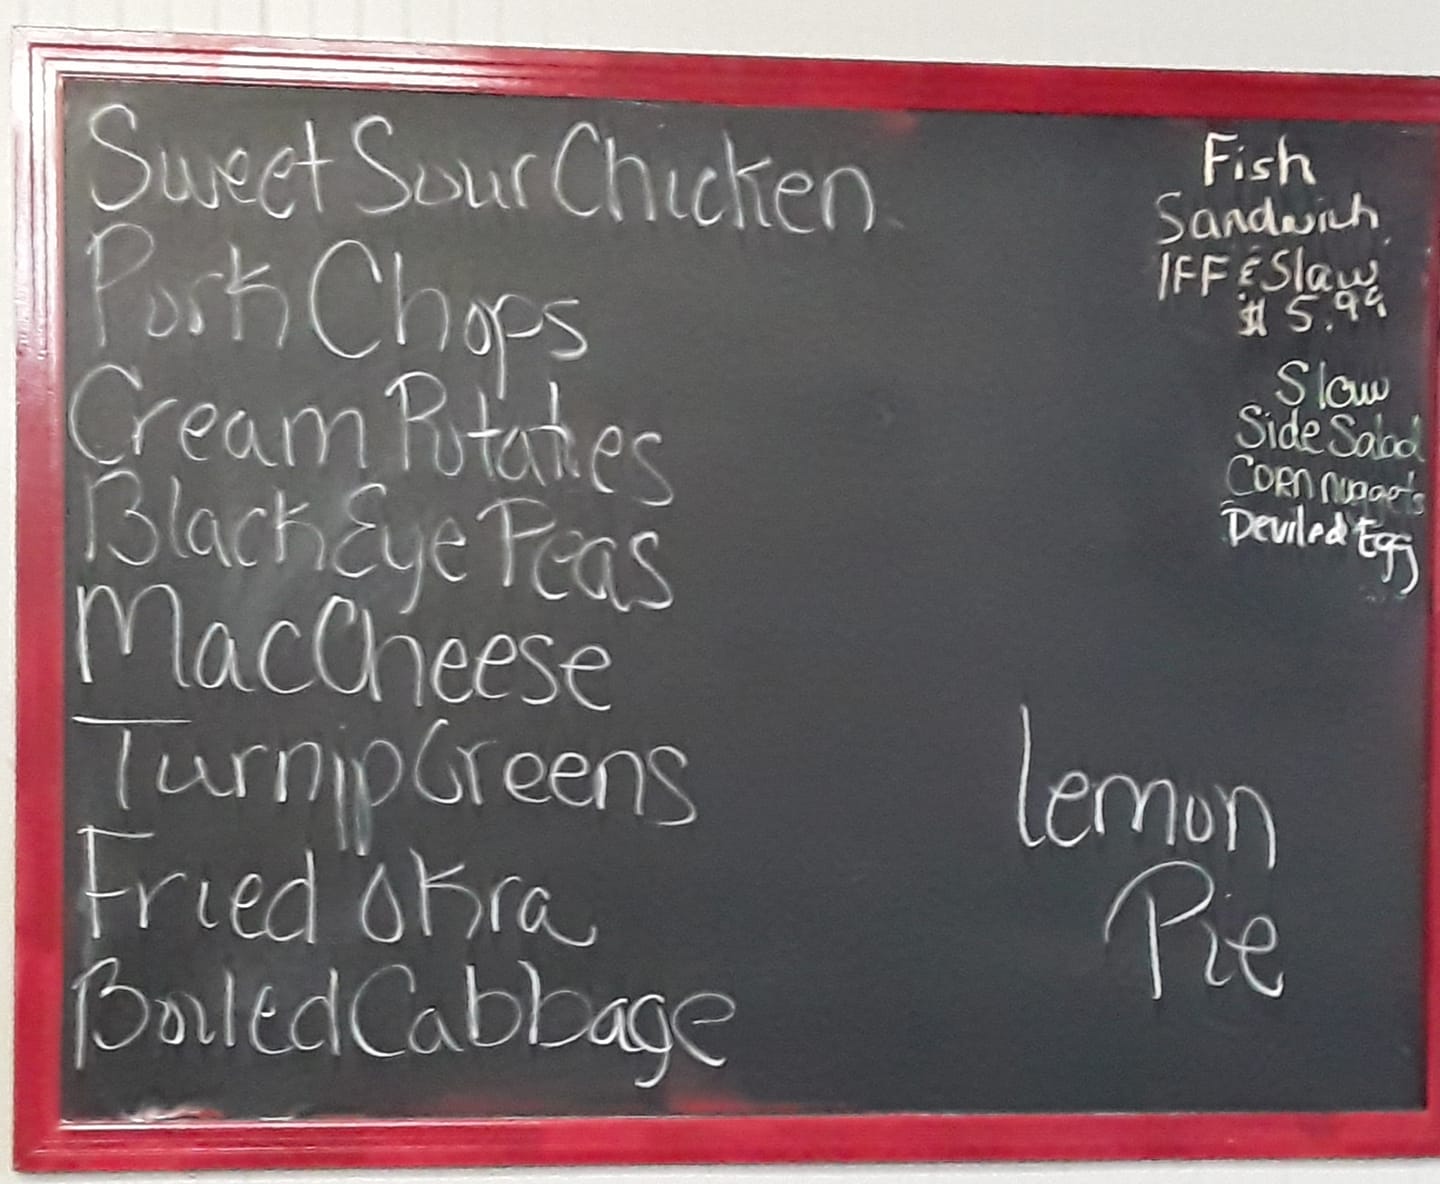 Sweet Sour Chicken
Pork Chops
Cream Potatoes
Black Eye Peas
Mac Cheese
Turnip Greens
Fried Okra
Boiled Cabbage
Fish
Sandwich
/FF & Slaw
$ 5.99
Slaw
Side Salad
Corn nuggets
Deviled Egg
Lemon
Pie